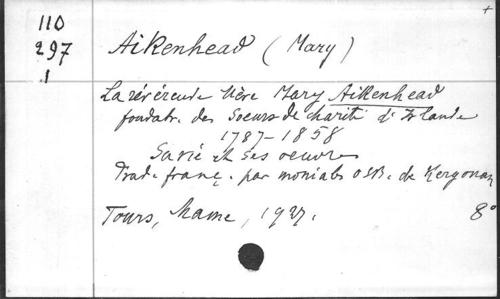 110
297
1
+
Aikenhead (Mary)
La révérende Mère Mary Aikenhead
fondatr. des Soeurs de charité d'Irlande
1787-1858
Sa vie et ses oeuvres
Trad. franç. par moniales OSB. de Kergonan
Tours, Mame, 1927.
8°